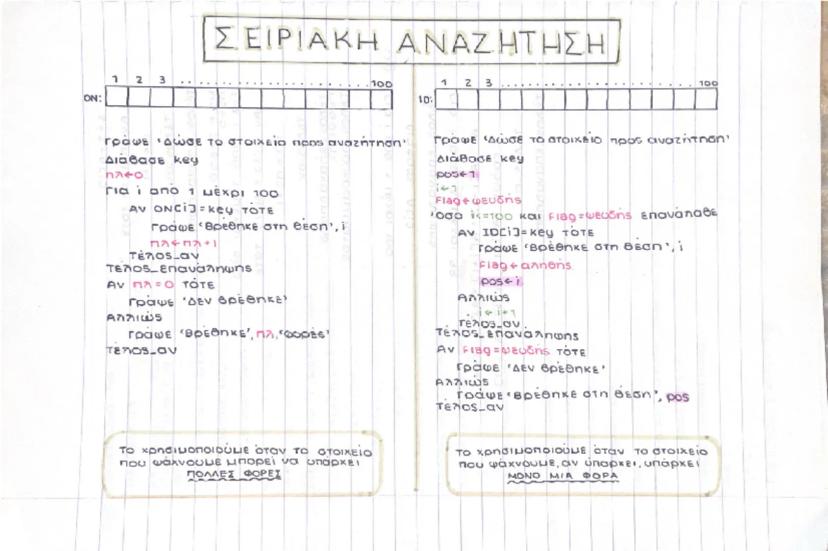 ΣΕΙΡΙΑΚΗ ΑΝΑΖΗΤΗΣΗ
1 2 3 ........................100
ΟΝ:
Γράψε 'Δώσε το στοιχείο προς αναζήτηση'
Διάβασε key
πλ←0
Για i από 1 μέχρι 100
Αν ΟΝ[i]=key τότε
Γράψε 'Βρέθηκε στη θέση', i
πλ←πλ+1
Τέλος_αν
Τέλος_επανάληψης
Αν πλ=0 τότε
Γράψε 'Δεν βρέθηκε'
Αλλιώς
Γράψε 'Βρέθηκε', πλ, 'φορές'
Τέλος_αν
Το χρησιμοποιούμε όταν το στοιχείο
που ψάχνουμε μπορεί να υπάρχει
ΠΟΛΛΕΣ ΦΟΡΕΣ
1 2 3 ........................100
ID:
Γράψε 'Δώσε το στοιχείο προς αναζήτηση'
Διάβασε key
pos←1
i←1
Flag←ψευδής
Όσο i<=100 και Flag=ψευδής επανάλαβε
Αν ID[i]=key τότε
Γράψε 'Βρέθηκε στη θέση', i
Flag←αληθής
pos←i
Αλλιώς
i←i+1
Τέλος_αν
Τέλος_επανάληψης
Αν Flag=ψευδής τότε
Γράψε 'Δεν βρέθηκε'
Αλλιώς
Γράψε 'Βρέθηκε στη θέση', pos
Τέλος_αν
Το χρησιμοποιούμε όταν το στοιχείο
που ψάχνουμε, αν υπάρχει, υπάρχει
ΜΟΝΟ ΜΙΑ ΦΟΡΑ